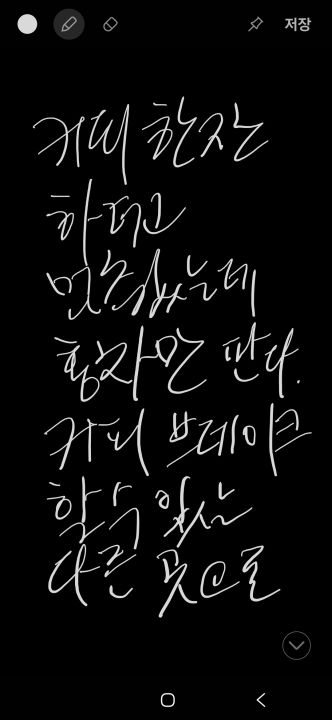 저장
커피 한잔
하려고
멋있는데
황차만 판다.
커피 브레이크
할 수 있는
다른 곳으로